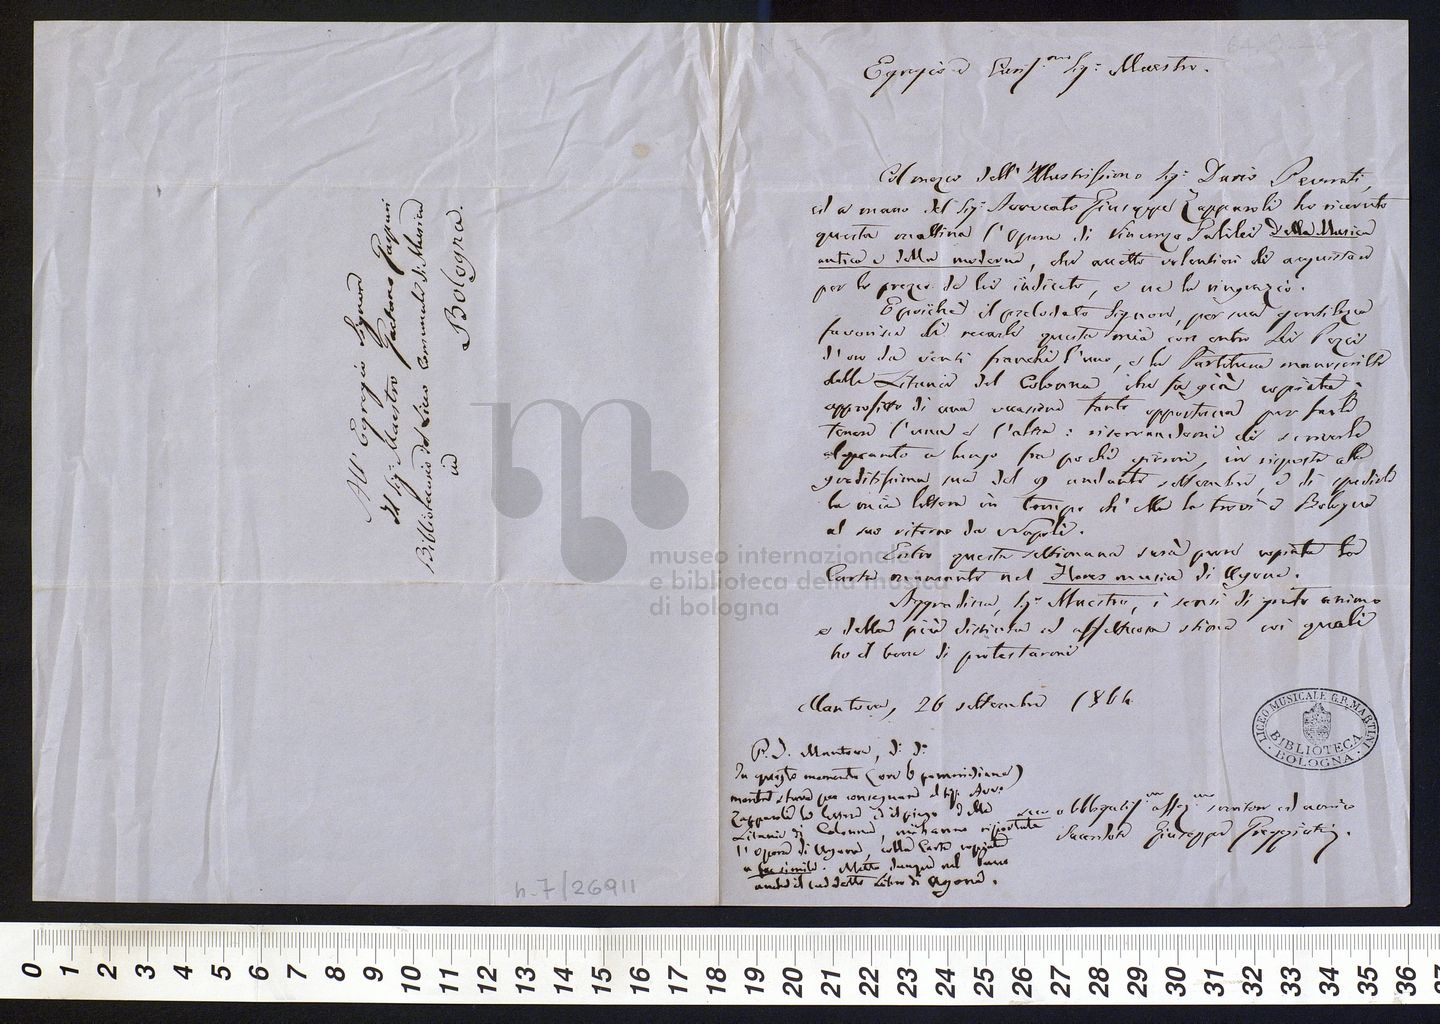 All' Egregio Signore
Il Sig.r Maestro Gaetano Gaspari
Bibliotecario del Liceo Comunale di Musica
in
Bologna.
Egregio e Cariss.mo Sig.r Maestro.
Col mezzo dell' Illustrissimo Sig.r Dario Peverati,
ed a mano del Sig.r Avvocato Giuseppe Zapparoli ho ricevuto
questa mattina l'Opera di Vincenzo Galilei Della Musica
antica e della moderna, che accetto volentieri di acquistare
per lo prezzo da lei indicato, e ne la ringrazio.
E poichè il prelodato Signore, per sua gentilezza
favorisce di recarle questa mia con entro Pezzi
d'oro da venti franchi l'uno, e la Partitura manoscritta
delle Litanie del Colonna che fu già copiata,
approfitto di una occasione tanto opportuna per farle
tenere l'una e l'altra: riservandomi di scriverle
alquanto a lungo fra pochi giorni, in risposta alla
graditissima sua del 9 andante settembre e di spedirle
la mia lettera in tempo ch' ella la trovi a Bologna
al suo ritorno da Napoli.
Entro questa settimana sarà pure copiata la
Carta mancante nel Flores musice di Ugone.
Aggradisca, Sig.r Maestro, i sensi di grato animo
e della più distinta ed affettuosa stima coi quali
ho il bene di protestarmi
Mantova, 26 settembre 1864
P. S. Mantova, di d.o
In questo momento (ore 6 pomeridiane)
mentre stava per consegnare al Sig. Avv.o
Zapparoli la lettera ed il piego delle
Litanie di Colonna, mi hanno riportata
l'Opera di Ugone, colla Carta copiata
a facsimile. Metto dunque nel
anche il suddetto Libro di Ugone.
suo obbligatiss.mo affez.mo servitore ed amico
Sacerdote Giuseppe Greggiati.
LICEO MUSICALE G.B. MARTINI
BIBLIOTECA
BOLOGNA
museo internazionale
e biblioteca della musica
di bologna
n. 7/26911
0 1 2 3 4 5 6 7 8 9 10 11 12 13 14 15 16 17 18 19 20 21 22 23 24 25 26 27 28 29 30 31 32 33 34 35 36 37